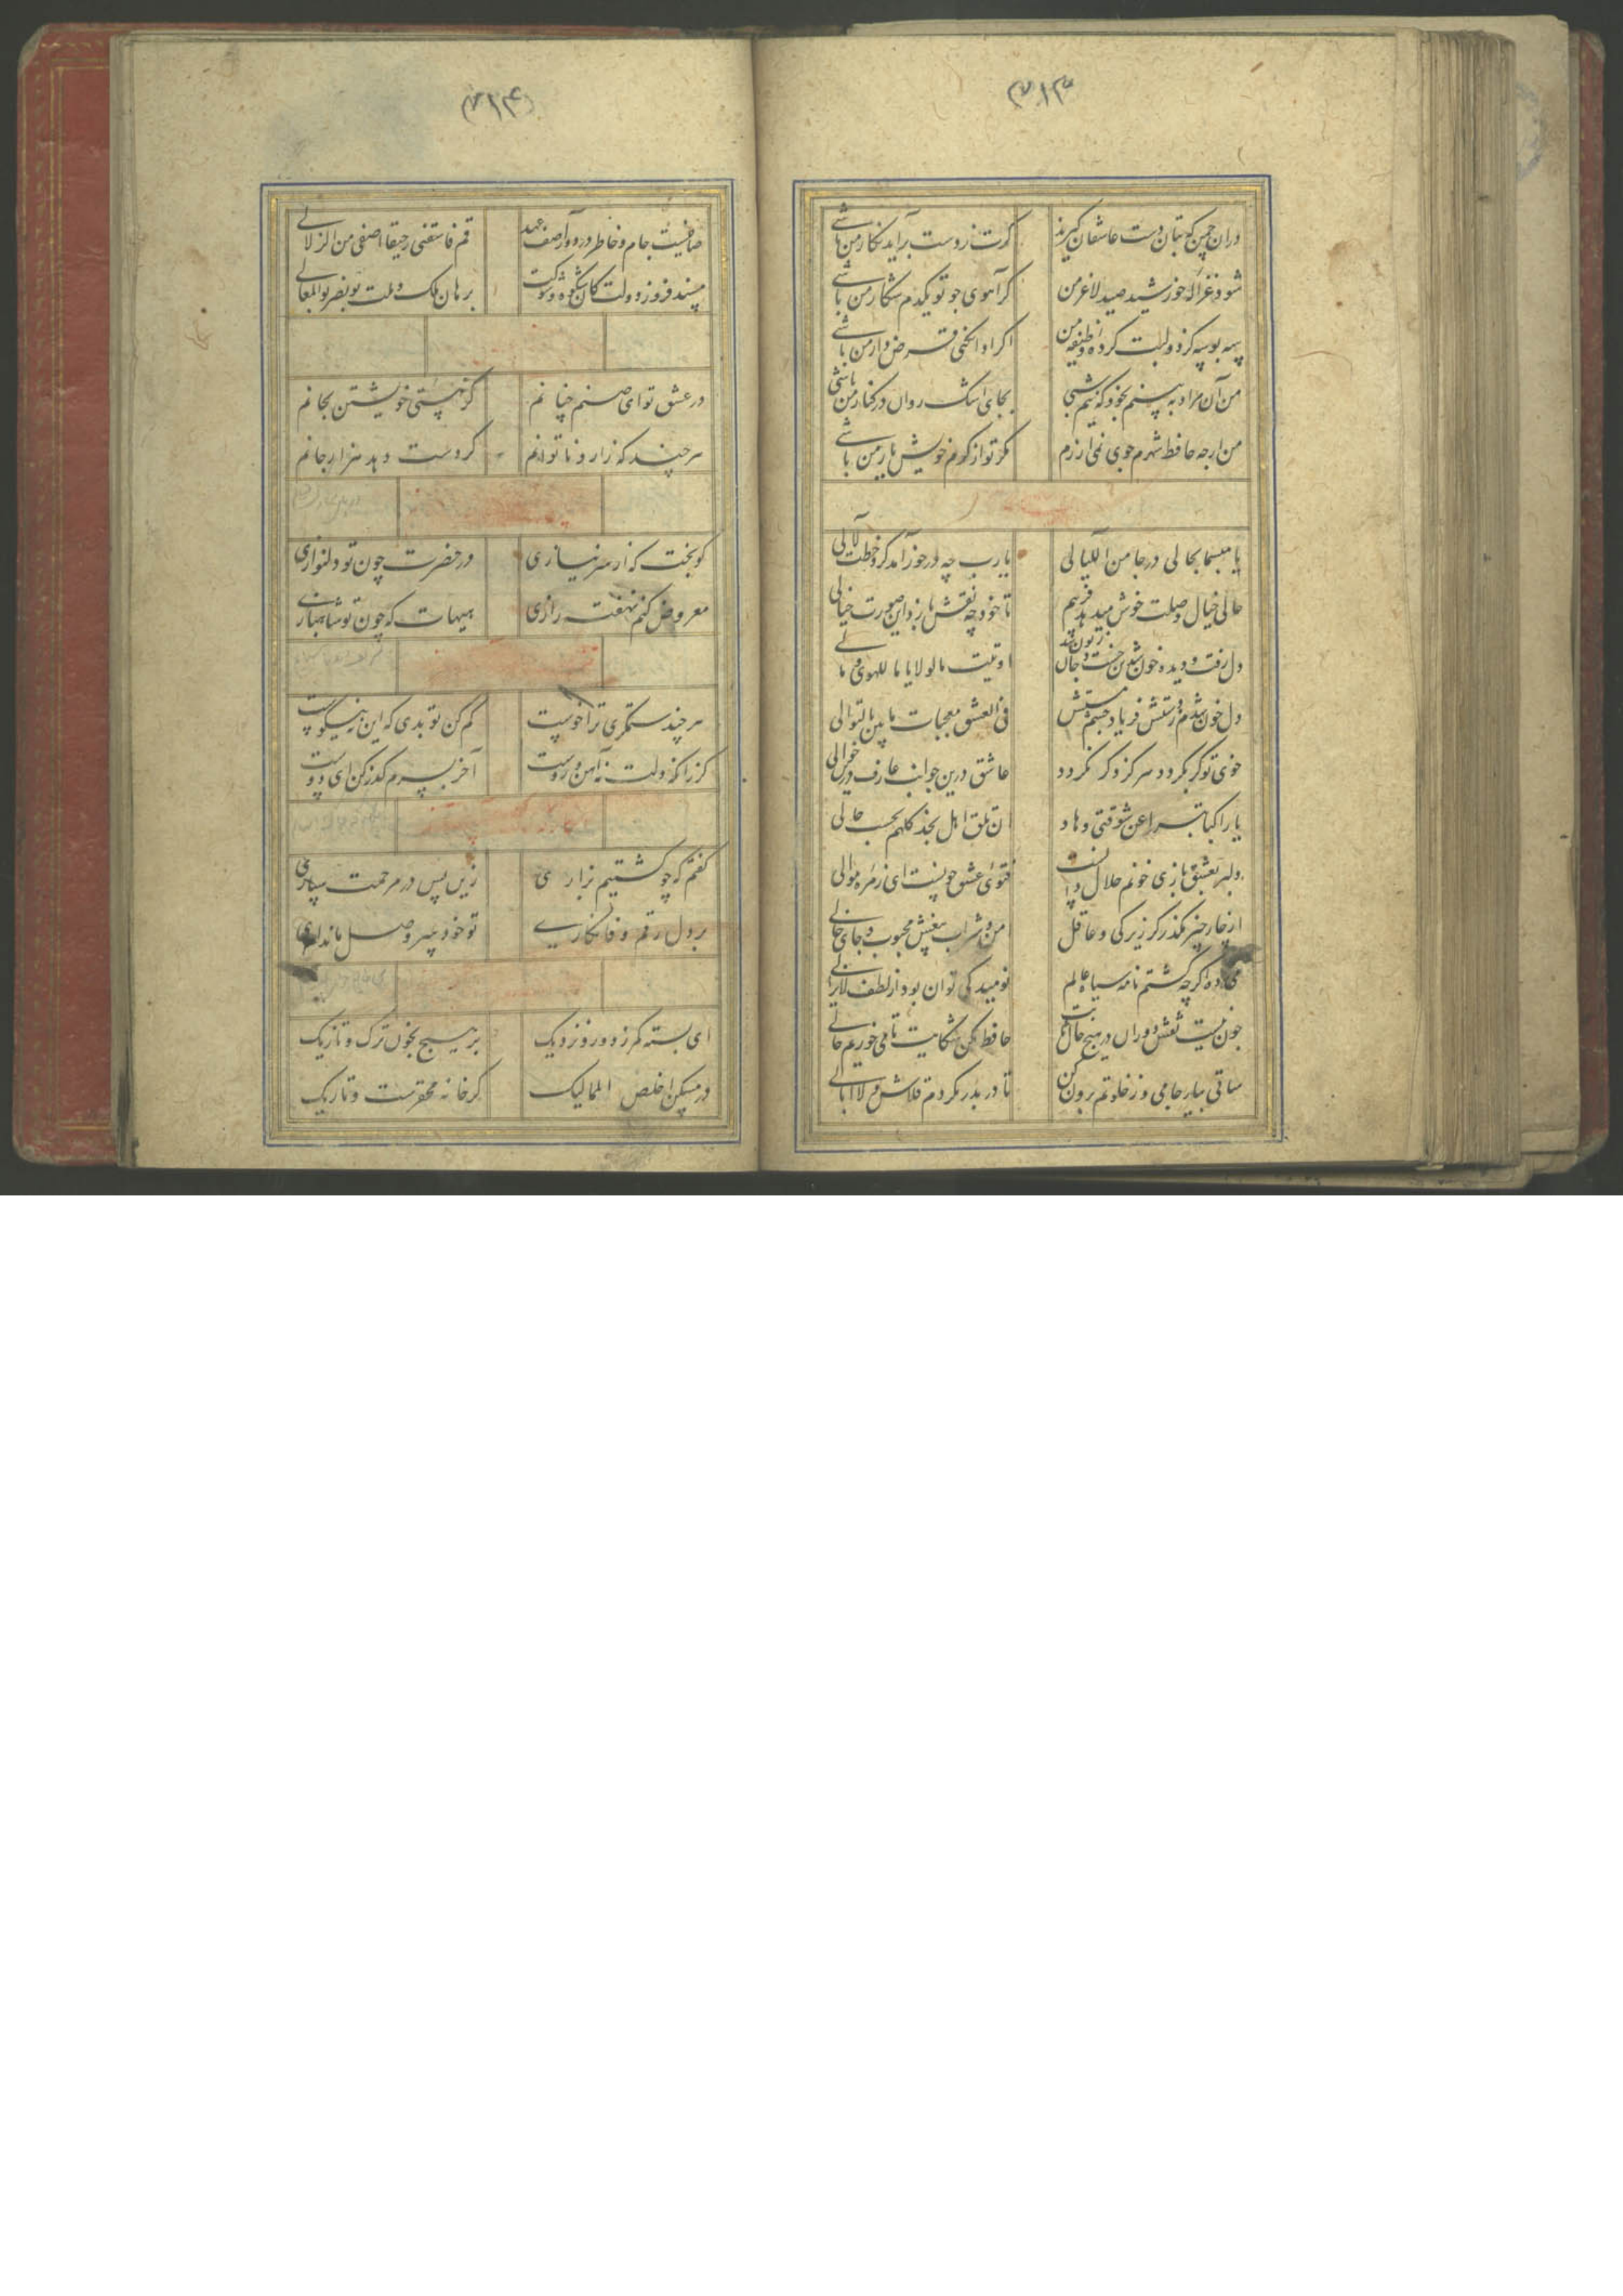 ۳۱۳
دران چمن که بتان دست عاشقان گیرند    گرت ز دست برآید نگار من باشی
شود غزاله خورشید صید لاغر من    گر آهوی چو تو یکدم شکار من باشی
سه بوسه کز دو لبت کرده وظیفه من    اگر ادا نکنی قرض دار من باشی
من آن مراد ببینم بخود که نیم شبی    بجای اشک روان در کنار من باشی
من ارچه حافظ شهرم جوی نمی ارزم    مگر تو از کرم خویش یار من باشی
یا مبسما یحاکی درجا من اللیالی    یا رب چه در خور آمد گردش خط هلالی
حالی خیال وصلت خوش میدهد فریبم    تا خود چه نقش بازد این صورت خیالی
دل رفت و دیده خون شد تن خست و جان زبون شد
دل خون شدم ز دستش وز یاد چشم مستش    فی العشق معجبات یاتین بالتوالی
خوی تو گر نگردد هرگز دگر نگردد    عاشق درین جوانب عارف در حوالی
یا راکبا تبرا عن شوقتی وهاد    ان تلق اهل نجد کلهم بحسب حالی
دلبر بعشق بازی خونم حلال دانست    فتوی عشق چونست ای زمره موالی
می ده اگر چه گشتم نامه سیاه عالم    نومید کی توان بود از لطف لایزالی
از چار چیز مگذر گر زیرکی و عاقل    امن و شراب بیغش محبوب و جای خالی
چون نیست نقش دوران در هیچ حال ثابت    حافظ مکن شکایت تا می خوریم حالی
ساقی بیار جامی وز خلوتم برون کن    تا در بدر بگردم قلاش و لاابالی
۳۱۴
صافیست جام و خاطر در دور آصف عهد    قم فاسقنی رحیقا اصفی من الزلالی
مسند فروز دولت کان شکوه و شوکت    برهان ملک و ملت بونصر بوالمعالی
در عشق تو ای صنم چنانم    کز هستی خویشتن بجانم
هر چند که زار و ناتوانم    گر دست دهد هزار جانم
کو بخت که از سر نیازی    در حضرت چون تو دلنوازی
معروض کنم نهفته رازی    هیهات که چون تو شاهبازی
هر چند ستمگری ترا خوست    کم کن تو بدی که این نه نیکوست
گر زانکه دلت نه آهن و روست    آخر بسرم گذر کن ای دوست
گفتم که چو کشتیم بزاری    زین پس در مرحمت سپاری
بر دل رقم وفا نگاری    تو خود سر وصل ما نداری
ای بسته کمر ز دور و نزدیک    بر بسیج بخون ترک و تازیک
در مسکن اخلص الممالیک    گر خانه محقرست و تاریک